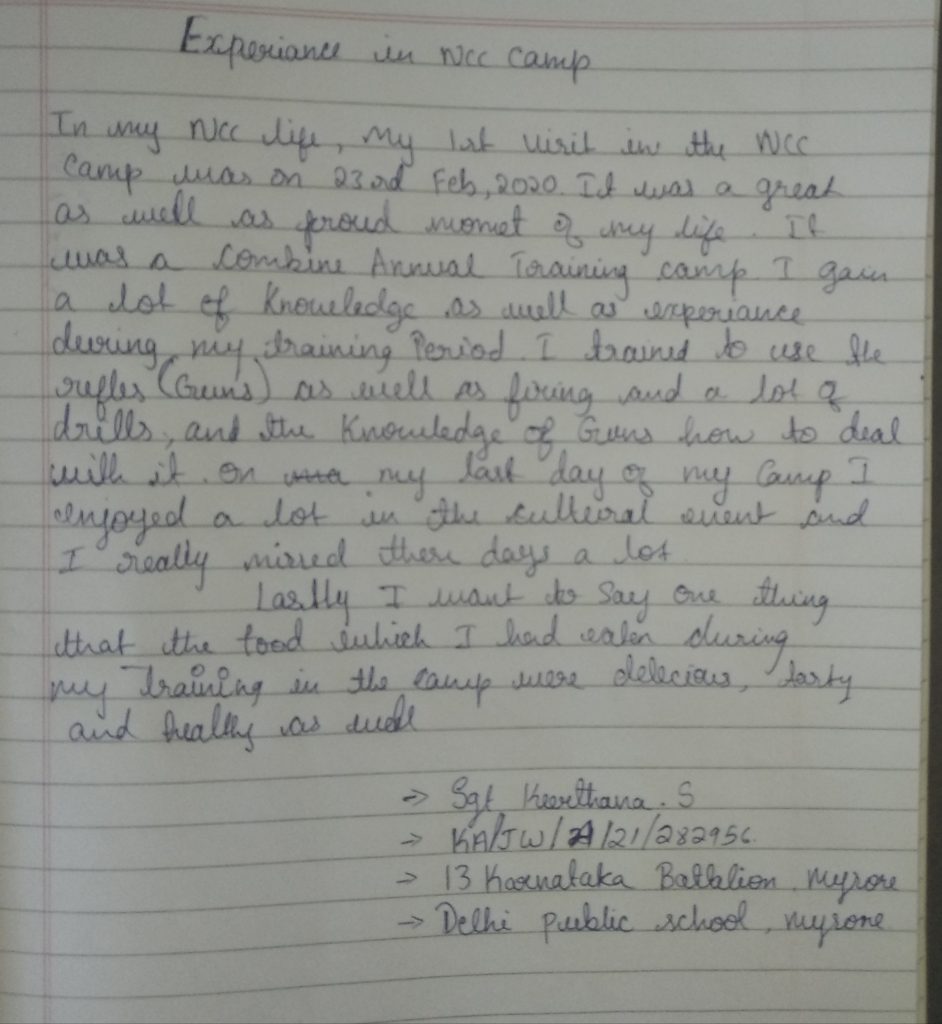 Experiance in NCC Camp
In my NCC life, my 1st visit in the NCC
Camp was on 23rd Feb, 2020. It was a great
as well as proud momet of my life. It
was a Combine Annual Training camp. I gain
a lot of Knowledge as well as experiance
during my training Period. I trained to use the
rifles (Guns) as well as firing and a lot of
drills, and the Knowledge of Guns how to deal
with it. on my last day of my Camp I
enjoyed a lot in the cultural event and
I really missed these days a lot.
Lastly I want to Say one thing
that the food which I had eaten during
my Training in the camp were delecious, tasty
and healthy as well
→ Sgt Keerthana. S
→ KA/JW/ /21/282956.
→ 13 Karnataka Battalion, mysore
→ Delhi public school, mysore